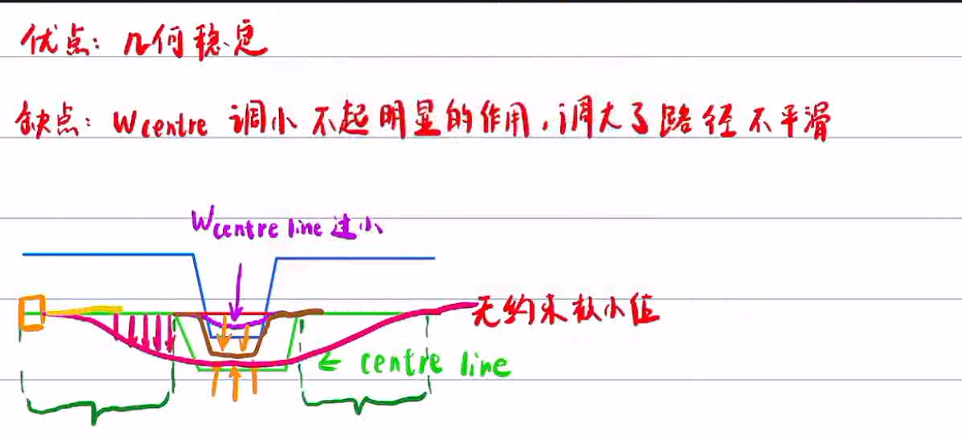 优点：几何稳定
缺点：Wcentre 调小不起明显的作用，调大了路径不平滑
Wcentre line 过小
无约束极小值
← centre line